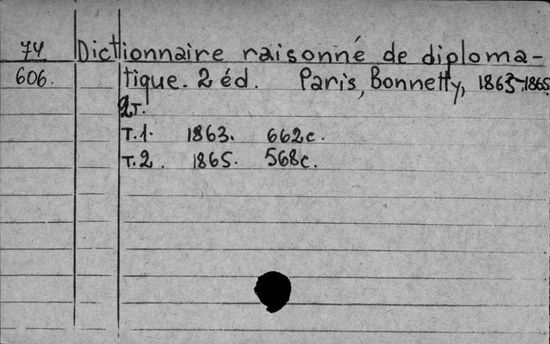 74 Dictionnaire raisonné de diploma-
606. tique. 2 éd. Paris, Bonnetty, 1863-1865.
2т.
т.1. 1863. 662c.
т.2. 1865. 568c.